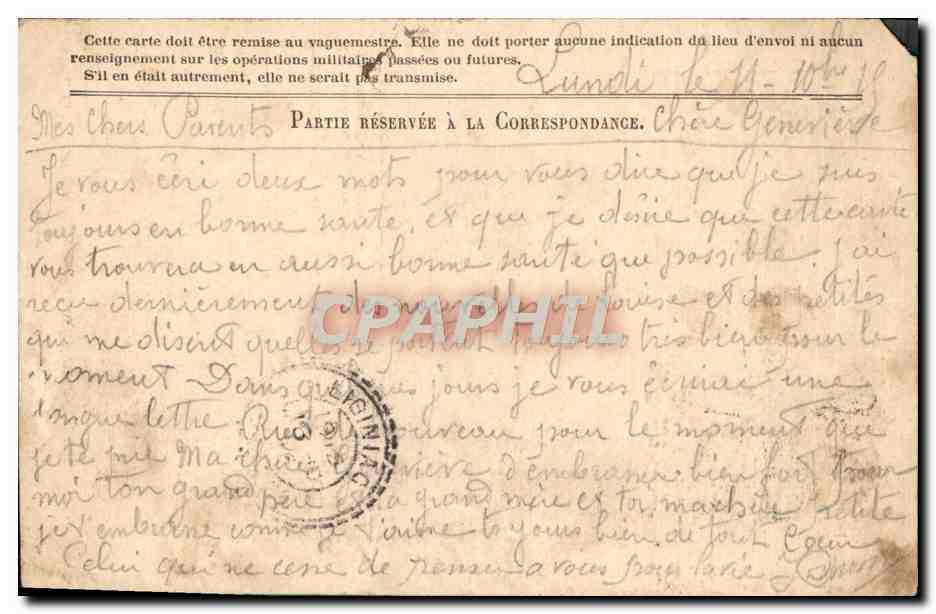 Cette carte doit être remise au vaguemestre. Elle ne doit porter aucune indication du lieu d'envoi ni aucun
renseignement sur les opérations militaires passées ou futures.
S'il en était autrement, elle ne serait pas transmise.
Lundi le 11 - 10bre 15
PARTIE RÉSERVÉE À LA CORRESPONDANCE.
Mes Chers Parents Chère Geneviève
Je vous écri deux mots pour vous dire que je suis
toujours en bonne santé, et que je désire que cette carte
vous trouvera en aussi bonne santé que possible. j'ai
reçu dernièrement des nouvelles de Louise et des petites
qui me disent quelles se portent toujours très bien pour le
moment Dans quelques jours je vous écrirai une
longue lettre Rien de nouveau pour le moment que
je te prie Ma chère Geneviève d'embrasser bien fort pour
moi ton grand père et ta grand mère et toi ma chère petite
je t'embrasse comme je t'aime toujours bien de tout Cœur
Celui qui ne cesse de penser a vous pour la vie
LIGINIAC
CPAPHIL